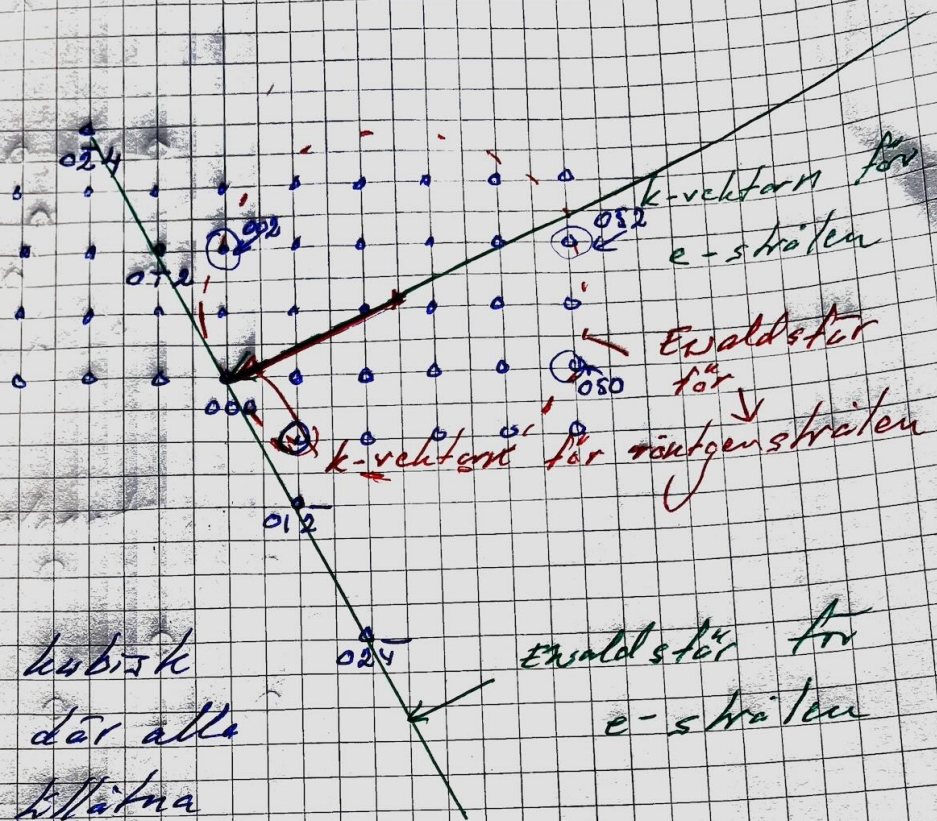 024
002
012
k-vektorn för
e-strålen
052
Ewaldsfär
för
050
000
k-vektorn för röntgenstrålen
012̅
024̅
Ewaldsfär för
e-strålen
kubisk
där alla
tillåtna